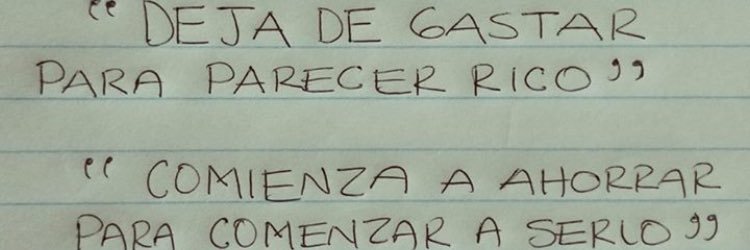 “ DEJA DE GASTAR
PARA PARECER RICO”
“ COMIENZA A AHORRAR
PARA COMENZAR A SERLO”